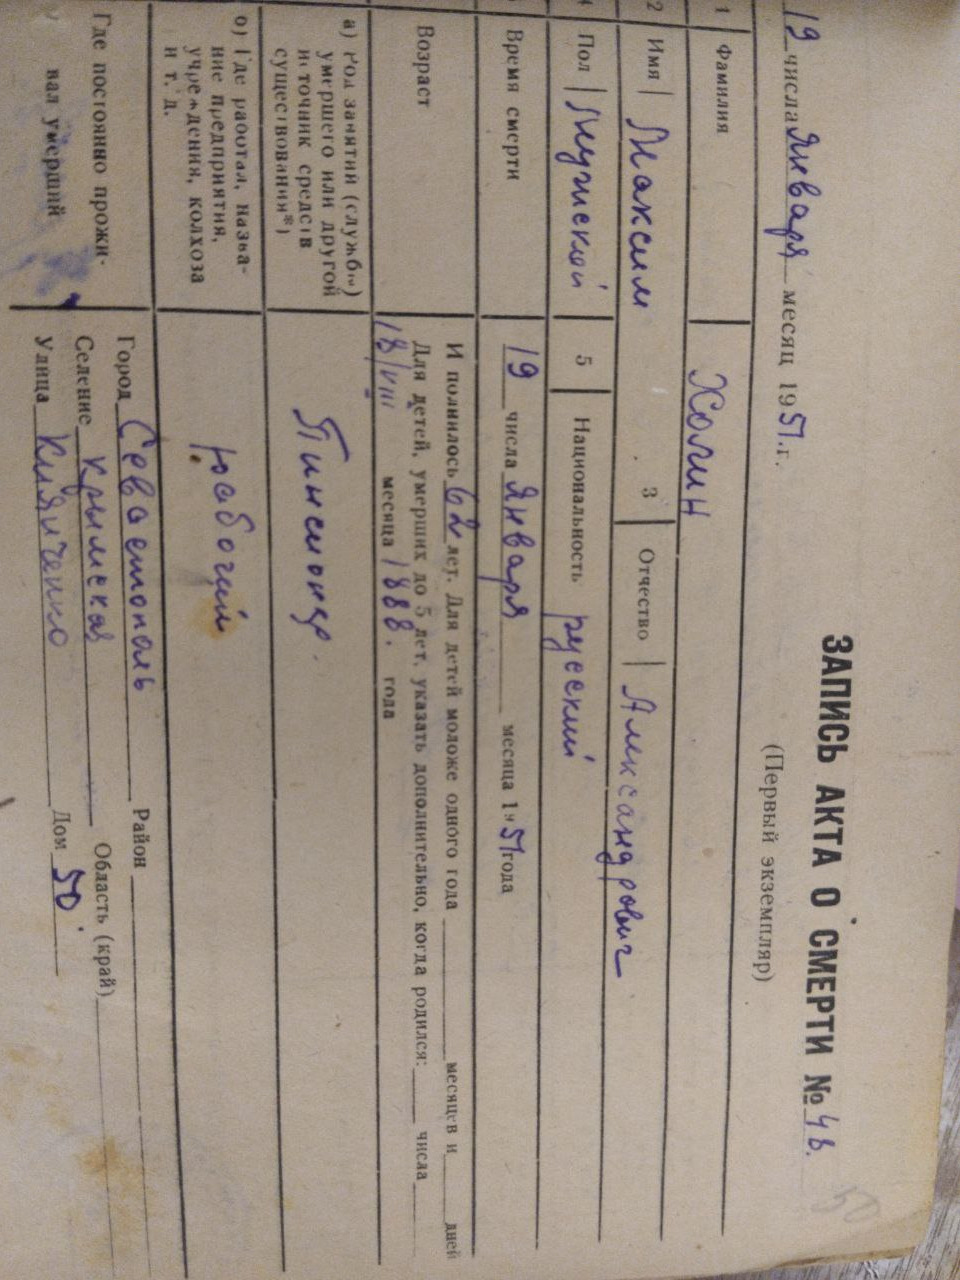 ЗАПИСЬ АКТА О СМЕРТИ № 48.
50
(Первый экземпляр)
19 числа Января месяц 1951 г.
1 Фамилия Холин
2 Имя Максим 3 Отчество Александрович
4 Пол Мужской 5 Национальность русский
Время смерти 19 числа Января месяца 1951 года
Возраст
Исполнилось 62 лет. Для детей моложе одного года месяцев и дней
Для детей, умерших до 5 лет, указать дополнительно, когда родился: числа
18/VIII месяца 1888. года
а) Род занятий (службы)
умершего или другой
источник средств
существования*)
Пинсионер.
б) Где работал, назва-
ние предприятия,
учреждения, колхоза
и т. д.
рабочий
Где постоянно прожи-
вал умерший
Город Севастополь Район
Селение Крымская Область (край)
Улица Дом 50.